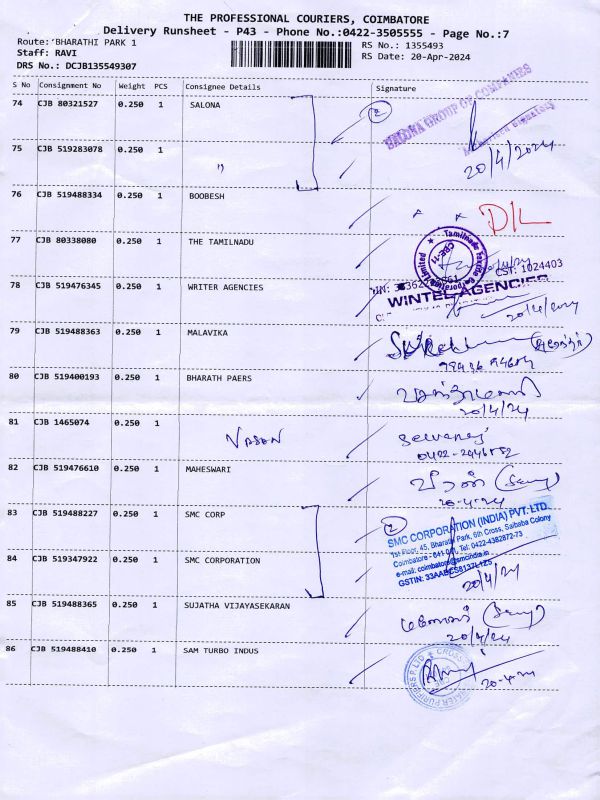 THE PROFESSIONAL COURIERS, COIMBATORE
Delivery Runsheet - P43 - Phone No.:0422-3505555 - Page No.:7
Route: BHARATHI PARK 1
Staff: RAVI
DRS No.: DCJB135549307
RS No.: 1355493
RS Date: 20-Apr-2024
S No Consignment No Weight PCS Consignee Details Signature
74 CJB 80321527 0.250 1 SALONA
2 SALONA GROUP OF COMPANIES
20/4/2024
75 CJB 519283078 0.250 1 "
76 CJB 519488334 0.250 1 BOOBESH
D/L
77 CJB 80338080 0.250 1 THE TAMILNADU
78 CJB 519476345 0.250 1 WRITER AGENCIES
CST: 1024403
WINTEL AGENCIES
20/4/2024
79 CJB 519488363 0.250 1 MALAVIKA
80 CJB 519400193 0.250 1 BHARATH PAERS
20/4/24
81 CJB 1465074 0.250 1
82 CJB 519476610 0.250 1 MAHESWARI
20-4-24
83 CJB 519488227 0.250 1 SMC CORP
2 SMC CORPORATION (INDIA) PVT. LTD.
1st Floor, 45, Bharathi Park, 6th Cross, Saibaba Colony
Coimbatore - 641 011, Tel: 0422-4382872-73
e-mail: coimbatore@smcindia.in
84 CJB 519347922 0.250 1 SMC CORPORATION
20/4/24
85 CJB 519488365 0.250 1 SUJATHA VIJAYASEKARAN
20/4/24
86 CJB 519488410 0.250 1 SAM TURBO INDUS
20-4-24